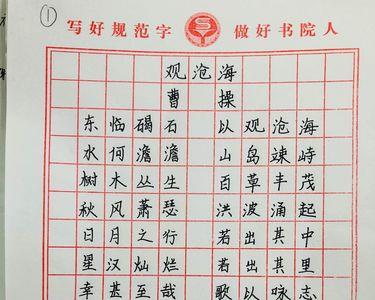 ①
写好规范字 做好书院人
观沧海
曹操
东临碣石 以观沧海
水何澹澹 山岛竦峙
树木丛生 百草丰茂
秋风萧瑟 洪波涌起
日月之行 若出其中
星汉灿烂 若出其里
幸甚至哉 歌以咏志